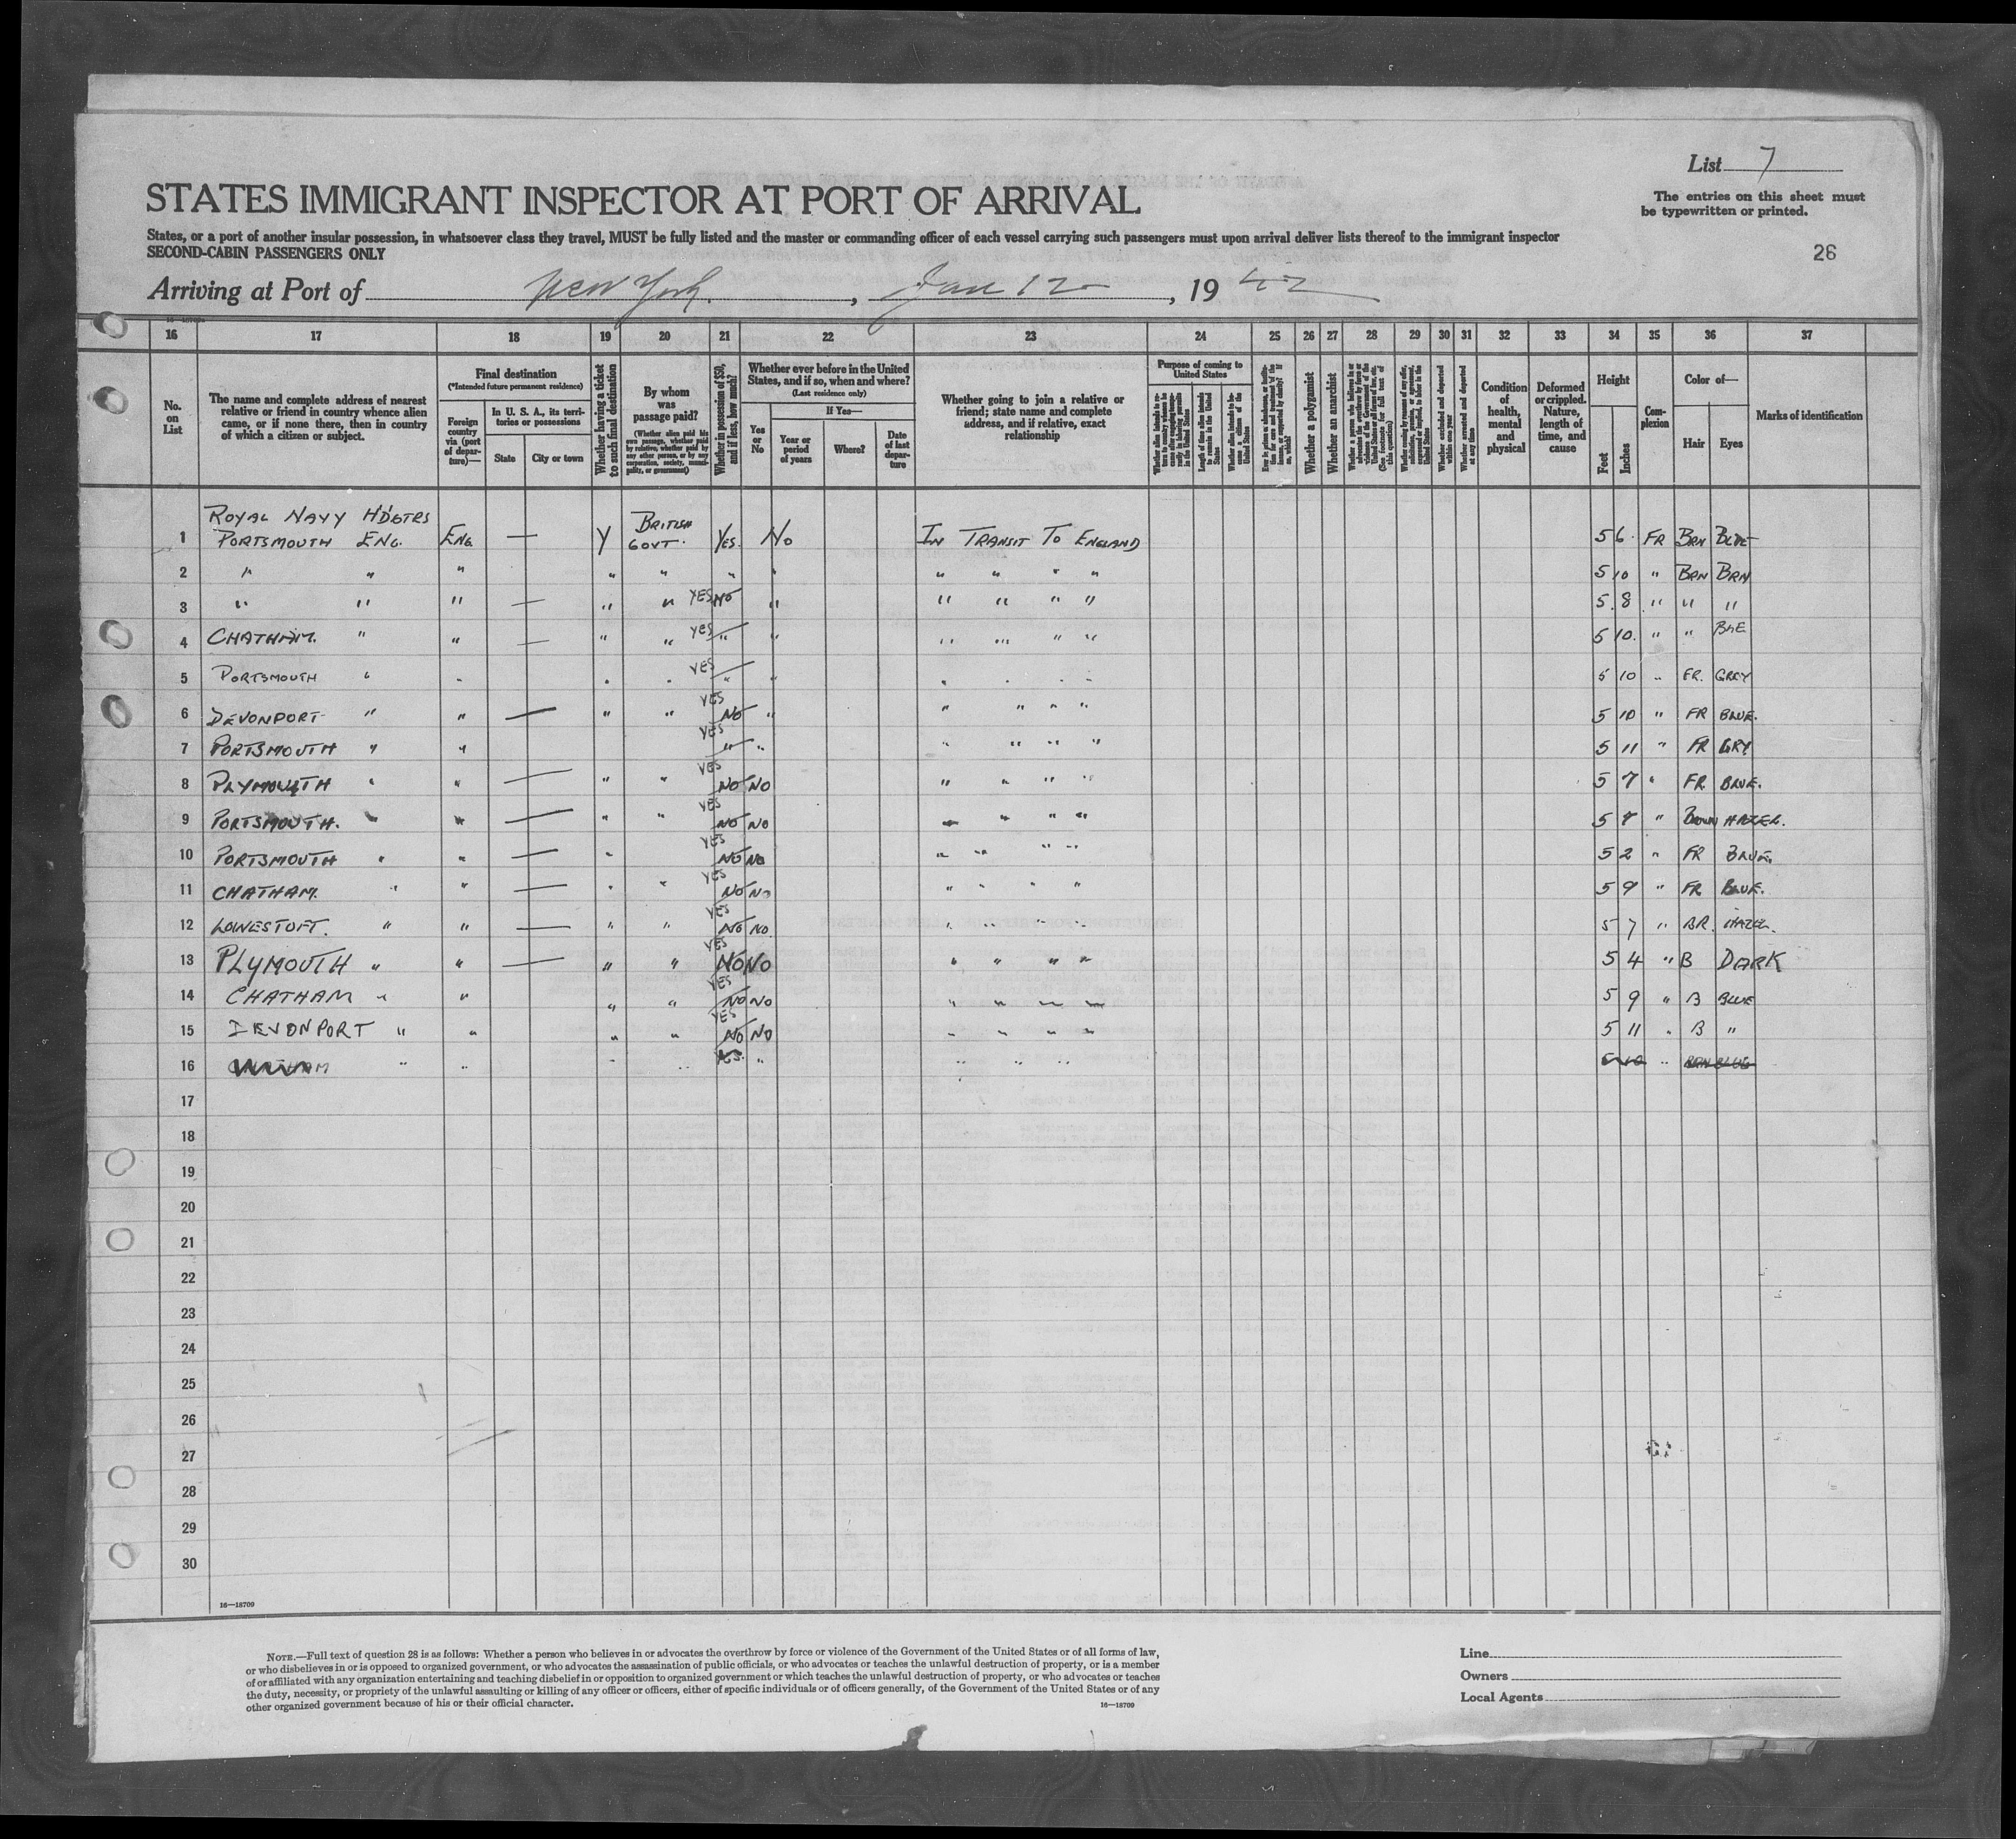 List 7
The entries on this sheet must
be typewritten or printed.
26
STATES IMMIGRANT INSPECTOR AT PORT OF ARRIVAL
States, or a port of another insular possession, in whatsoever class they travel, MUST be fully listed and the master or commanding officer of each vessel carrying such passengers must upon arrival deliver lists thereof to the immigrant inspector
SECOND-CABIN PASSENGERS ONLY
Arriving at Port of New York, Jan 12, 1942
16 17 18 19 20 21 22 23 24 25 26 27 28 29 30 31 32 33 34 35 36 37
No. on List
The name and complete address of nearest relative or friend in country whence alien came, or if none there, then in country of which a citizen or subject.
Final destination
(*Intended future permanent residence)
Foreign country via (port of departure)—
In U. S. A., its territories or possessions
State
City or town
Whether having a ticket to such final destination
By whom was passage paid?
(Whether alien paid his own passage, whether paid by relative, whether paid by any other person, or by any corporation, society, municipality, or government)
Whether in possession of $50, and if less, how much?
Whether ever before in the United States, and if so, when and where?
(Last residence only)
Yes or No
If Yes—
Year or period of years
Where?
Date of last departure
Whether going to join a relative or friend; state name and complete address, and if relative, exact relationship
Purpose of coming to United States
Length of time alien intends to remain in the United States
Whether alien intends to become a citizen of the United States
Whether a polygamist
Whether an anarchist
Whether excluded and deported within one year
Whether arrested and deported at any time
Condition of health, mental and physical
Deformed or crippled. Nature, length of time, and cause
Height
Feet
Inches
Complexion
Color of—
Hair
Eyes
Marks of identification
ROYAL NAVY H'D'QTRS
1 PORTSMOUTH ENG. ENG — Y BRITISH GOVT. YES. NO IN TRANSIT TO ENGLAND 5 6 FR BRN BLUE
2 " " " " " " " " " " " 5 10 " BRN BRN
3 " " " — " " YES NO " " " " " 5 8 " " "
4 CHATHAM. " " — " " YES " " " " " " 5 10 " " BLE
5 PORTSMOUTH " " " " YES " " " " " " 5 10 " FR. GREY
6 DEVONPORT " " — " " YES NO " " " " " 5 10 " FR BLUE.
7 PORTSMOUTH " " YES " " " " " " 5 11 " FR GRY
8 PLYMOUTH " " — " " YES NO NO " " " " 5 7 " FR BLUE.
9 PORTSMOUTH. " " — " " YES NO NO " " " " 5 7 " BROWN HAZEL.
10 PORTSMOUTH " " — " YES NO NO " " " " 5 2 " FR BLUE.
11 CHATHAM. " " — " " YES NO NO " " " " 5 9 " FR BLUE.
12 LOWESTOFT. " " — " " YES NO NO. " " " " 5 7 " BR. HAZEL.
13 PLYMOUTH " " — " " YES NO NO " " " " 5 4 " B DARK
14 CHATHAM " " " " YES NO NO " " " " 5 9 " B BLUE
15 DEVONPORT " " " " YES NO NO " " " " 5 11 " B "
16 CHATHAM " " " " YES. " " " " 5 10 " BRN BLUE
17
18
19
20
21
22
23
24
25
26
27
28
29
30
16—18709
NOTE.—Full text of question 28 is as follows: Whether a person who believes in or advocates the overthrow by force or violence of the Government of the United States or of all forms of law,
or who disbelieves in or is opposed to organized government, or who advocates the assassination of public officials, or who advocates or teaches the unlawful destruction of property, or is a member
of or affiliated with any organization entertaining and teaching disbelief in or opposition to organized government or which teaches the unlawful destruction of property, or who advocates or teaches
the duty, necessity, or propriety of the unlawful assaulting or killing of any officer or officers, either of specific individuals or of officers generally, of the Government of the United States or of any
other organized government because of his or their official character.
16—18709
Line
Owners
Local Agents